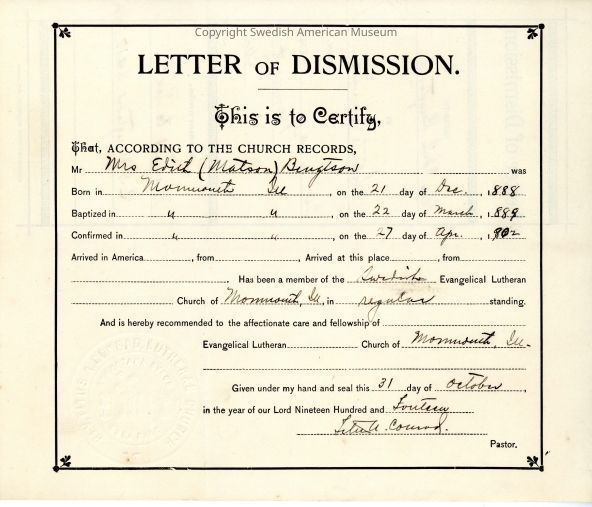 Copyright Swedish American Museum
LETTER OF DISMISSION.
This is to Certify,
That, ACCORDING TO THE CHURCH RECORDS,
Mr Mrs Edith (Matson) Bengtson was
Born in Monmouth Ill , on the 21 day of Dec. , 1888
Baptized in " " , on the 22 day of March , 1889
Confirmed in " " , on the 27 day of Apr. , 1902
Arrived in America , from , Arrived at this place , from
Has been a member of the Swedish Evangelical Lutheran
Church of Monmouth, Ill, in regular standing.
And is hereby recommended to the affectionate care and fellowship of
Evangelical Lutheran Church of Monmouth, Ill.
Given under my hand and seal this 31 day of October ,
in the year of our Lord Nineteen Hundred and Fourteen
Conrad.
Pastor.